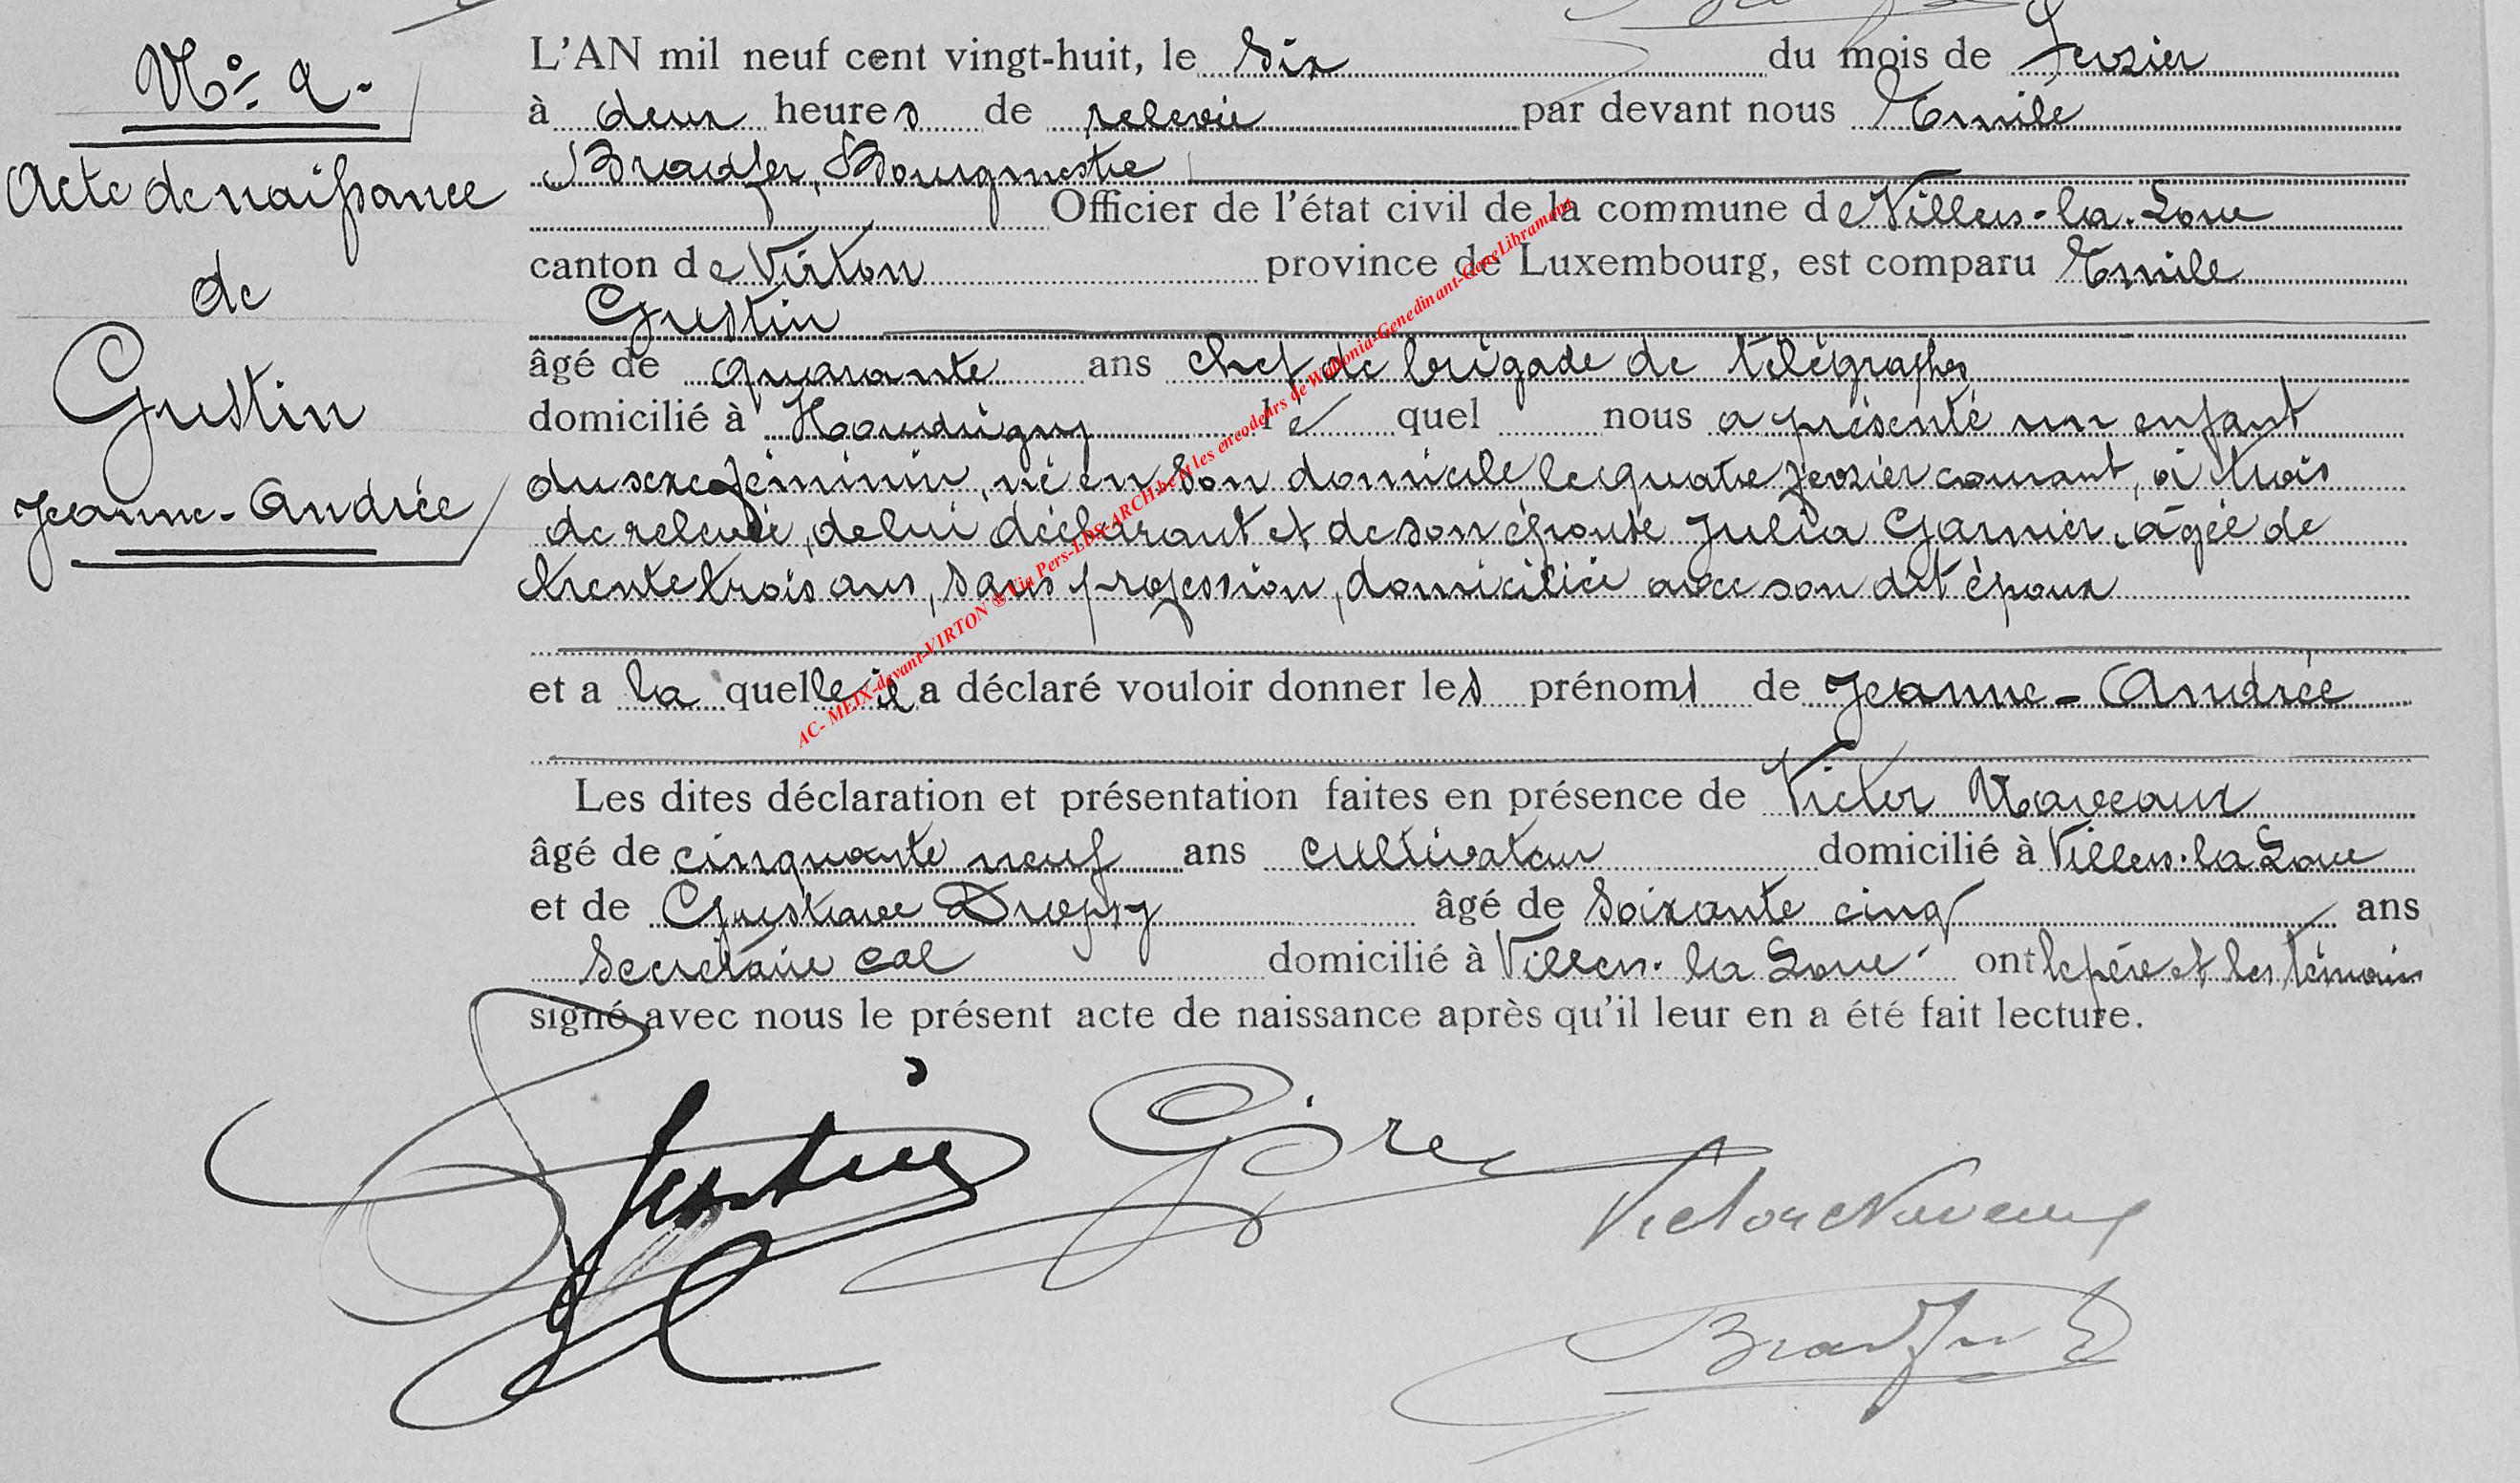 N° 2.
Acte de naissance
de
Gustin
Jeanne-Andrée
L'AN mil neuf cent vingt-huit, le six du mois de février
à deux heures de relevée par devant nous Emile
Bradfer, Bourgmestre
Officier de l'état civil de la commune de Villers-la-Loue
canton de Virton province de Luxembourg, est comparu Emile
Gustin
âgé de quarante ans chef de brigade de télégraphes
domicilié à Houdrigny le quel nous a présenté un enfant
du sexe féminin, né en son domicile le quatre février courant, à trois
de relevée, de lui déclarant et de son épouse Julia Garnier, âgée de
trente trois ans, sans profession, domiciliée avec son dit époux
et a la quelle il a déclaré vouloir donner les prénoms de Jeanne-Andrée
Les dites déclaration et présentation faites en présence de Victor Naveaux
âgé de cinquante neuf ans cultivateur domicilié à Villers-la-Loue
et de Gustave âgé de soixante cinq ans
Secrétaire cal domicilié à Villers-la-Loue ont le père et les témoins
signé avec nous le présent acte de naissance après qu'il leur en a été fait lecture.
Gustin
Victor Naveaux
Bradfer E
AC- MEIX-devant-VIRTON ® Via Pers-LDS-ARCH.be et les encodeurs de Wallonia-Genedinant-GeneLibramont